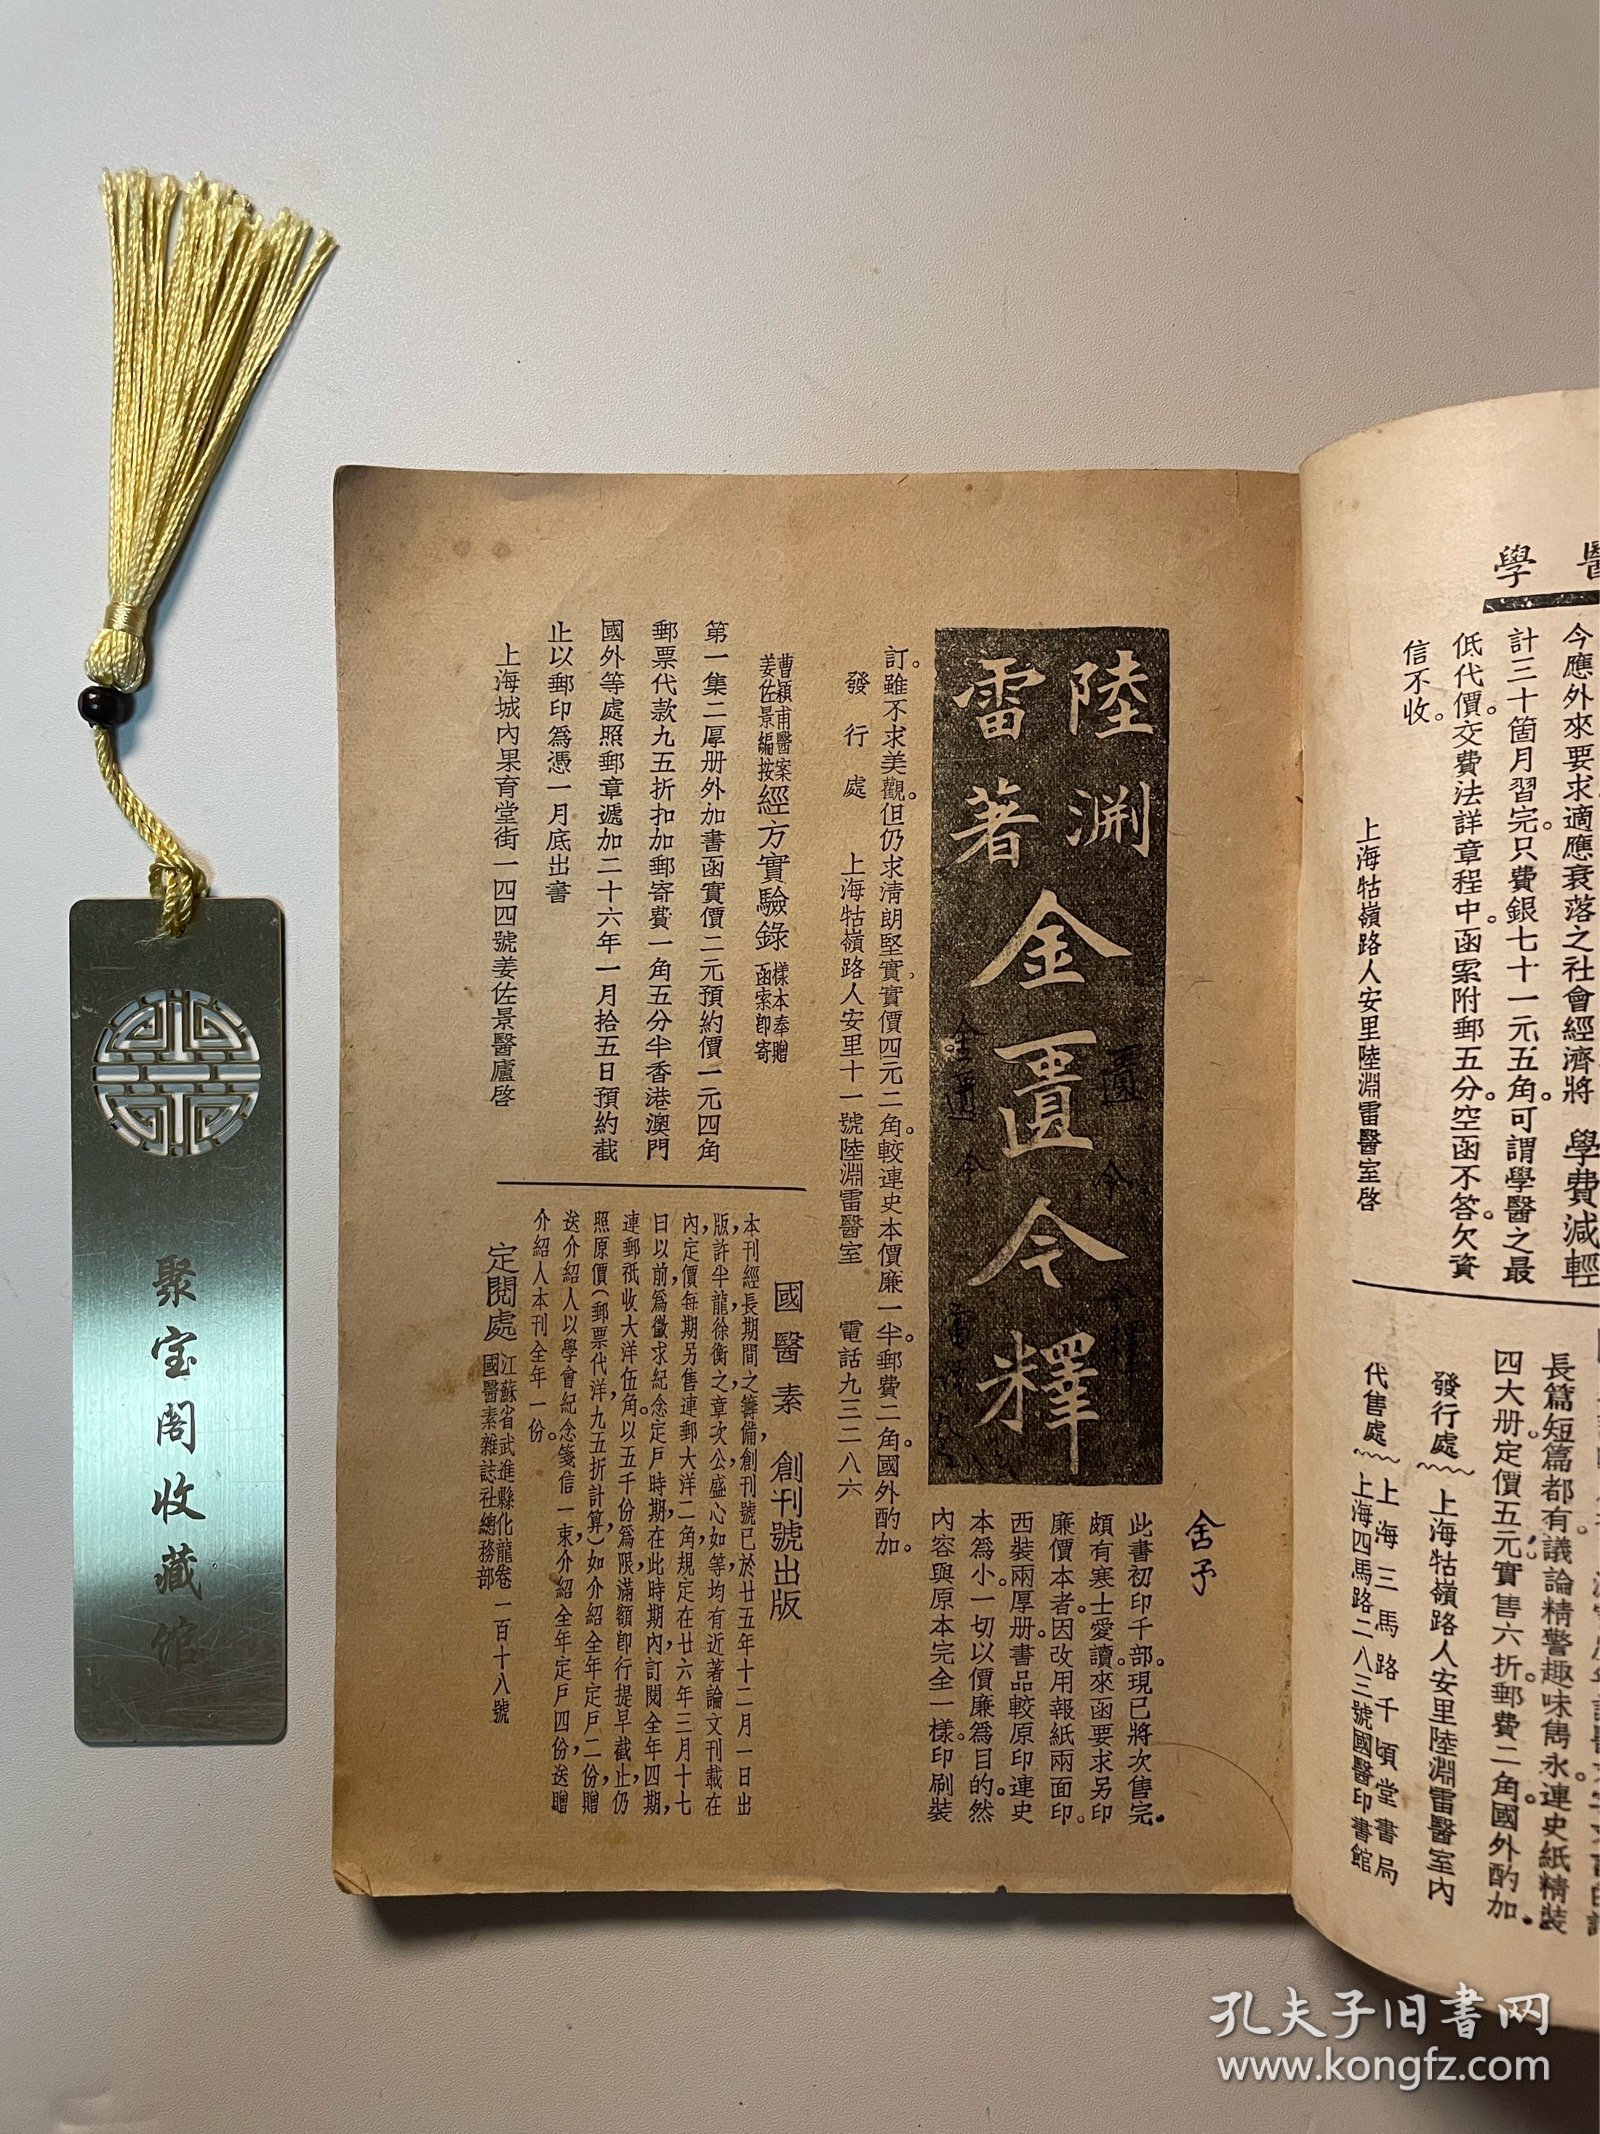 學 醫
今應外來要求適應衰落之社會經濟將 學費減輕
計三十箇月習完。只費銀七十一元五角。可謂學醫之最
低代價。交費法詳章程中。函索附郵五分。空函不答。欠資
信不收。
上海牯嶺路人安里陸淵雷醫室啓
長篇短篇都有議論精警趣味雋永連史紙精裝
四大册定價五元實售六折。郵費二角國外酌加。
發行處 上海牯嶺路人安里陸淵雷醫室內
代售處 上海三馬路千頃堂書局
上海四馬路二八三號國醫印書館
陸淵
雷著
金匱今釋
舍予
此書初印千部。現已將次售完。
頗有寒士愛讀。來函要求另印
廉價本者。因改用報紙兩面印。
西裝兩厚册。書品較原印連史
本爲小。一切以價廉爲目的。然
內容與原本完全一樣。印刷裝
訂。雖不求美觀。但仍求淸朗堅實。實價四元二角。較連史本價廉一半。郵費二角。國外酌加。
發行處 上海牯嶺路人安里十一號陸淵雷醫室 電話九三二八六
曹穎甫醫案
姜佐景編按
經方實驗錄
樣本奉贈
函索卽寄
第一集二厚册外加書函實價二元預約價一元四角
郵票代款九五折扣加郵寄費一角五分半香港澳門
國外等處照郵章遞加二十六年一月拾五日預約截
止以郵印爲憑一月底出書
上海城內果育堂街一四四號姜佐景醫廬啓
國醫素 創刊號出版
本刊經長期間之籌備，創刊號已於廿五年十二月一日出
版，許半龍，徐衡之，章次公，盛心如等均有近著論文刊載在
內，定價每期另售連郵大洋二角，規定在廿六年三月十七
日以前，爲徵求紀念定戶時期，在此時期內，訂閱全年四期，
連郵祇收大洋伍角。以五千份爲限，滿額卽行提早截止，仍
照原價（郵票代洋，九五折計算）如介紹全年定戶二份，贈
送介紹人以學會紀念箋信一束，介紹全年定戶四份，送贈
介紹人本刊全年一份。
定閱處
江蘇省武進縣化龍巷一百十八號
國醫素雜誌社總務部
聚宝阁收藏馆
孔夫子旧书网
www.kongfz.com